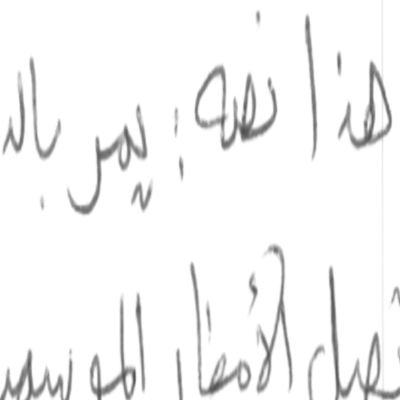 هذا نصه: يمر بالد
تصل الأمطار الموسمي